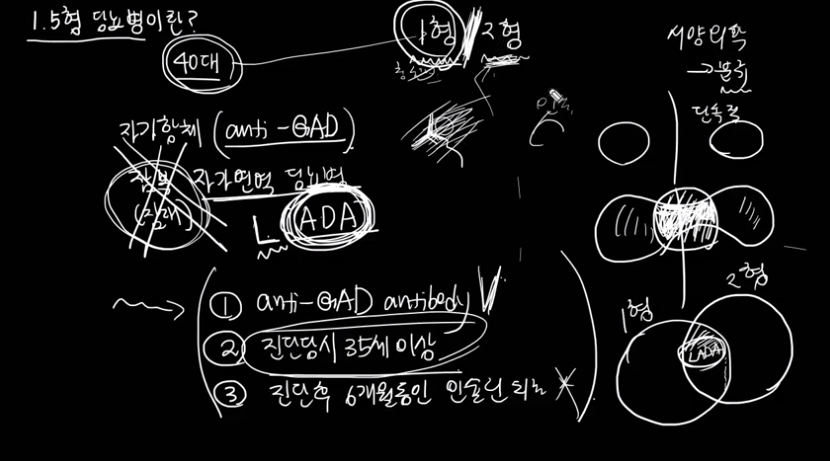 1.5형 당뇨병이란?
40대
1형
2형
서양의학
→ 분류
단속적
자가항체 (anti-GAD)
잠복 자가면역 당뇨병
(잠재)
L. ADA
① anti-GAD antibody
② 진단당시 35세 이상
③ 진단후 6개월동안 인슐린 치료 X
1형
2형
LADA